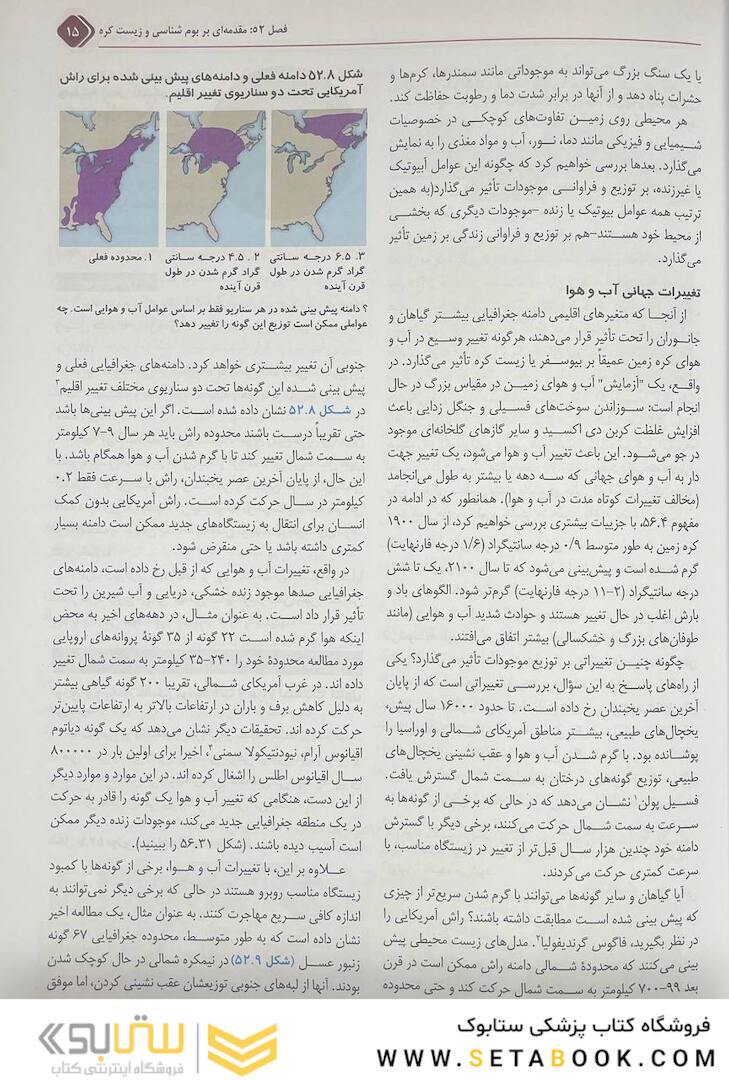 فصل ۵۲: مقدمه‌ای بر بوم شناسی و زیست کره
۱۵
یا یک سنگ بزرگ می‌تواند به موجوداتی مانند سمندرها، کرم‌ها و
حشرات پناه دهد و از آنها در برابر شدت دما و رطوبت حفاظت کند.
هر محیطی روی زمین تفاوت‌های کوچکی در خصوصیات
شیمیایی و فیزیکی مانند دما، نور، آب و مواد مغذی را به نمایش
می‌گذارد. بعدها بررسی خواهیم کرد که چگونه این عوامل آبیوتیک
یا غیرزنده، بر توزیع و فراوانی موجودات تأثیر می‌گذارد(به همین
ترتیب همه عوامل بیوتیک یا زنده -موجودات دیگری که بخشی
از محیط خود هستند-هم بر توزیع و فراوانی زندگی بر زمین تأثیر
می‌گذارد.
تغییرات جهانی آب و هوا
از آنجا که متغیرهای اقلیمی دامنه جغرافیایی بیشتر گیاهان و
جانوران را تحت تأثیر قرار می‌دهند، هرگونه تغییر وسیع در آب و
هوای کره زمین عمیقاً بر بیوسفر یا زیست کره تأثیر می‌گذارد. در
واقع، یک "آزمایش" آب و هوای زمین در مقیاس بزرگ در حال
انجام است: سوزاندن سوخت‌های فسیلی و جنگل زدایی باعث
افزایش غلظت کربن دی اکسید و سایر گازهای گلخانه‌ای موجود
در جو می‌شود. این باعث تغییر آب و هوا می‌شود، یک تغییر جهت
دار به آب و هوای جهانی که سه دهه یا بیشتر به طول می‌انجامد
(مخالف تغییرات کوتاه مدت در آب و هوا). همانطور که در ادامه در
مفهوم ۵۶.۴، با جزییات بیشتری بررسی خواهیم کرد، از سال ۱۹۰۰
کره زمین به طور متوسط ۰/۹ درجه سانتیگراد (۱/۶ درجه فارنهایت)
گرم شده است و پیش‌بینی می‌شود که تا سال ۲۱۰۰، یک تا شش
درجه سانتیگراد (۲-۱۱ درجه فارنهایت) گرم‌تر شود. الگوهای باد و
بارش اغلب در حال تغییر هستند و حوادث شدید آب و هوایی (مانند
طوفان‌های بزرگ و خشکسالی) بیشتر اتفاق می‌افتند.
چگونه چنین تغییراتی بر توزیع موجودات تأثیر می‌گذارد؟ یکی
از راه‌های پاسخ به این سؤال، بررسی تغییراتی است که از پایان
آخرین عصر یخبندان رخ داده است. تا حدود ۱۶۰۰۰ سال پیش،
یخچال‌های طبیعی، بیشتر مناطق آمریکای شمالی و اوراسیا را
پوشانده بود. با گرم شدن آب و هوا و عقب نشینی یخچال‌های
طبیعی، توزیع گونه‌های درختان به سمت شمال گسترش یافت.
فسیل پولن۱ نشان می‌دهد که در حالی که برخی از گونه‌ها به
سرعت به سمت شمال حرکت می‌کنند، برخی دیگر با گسترش
دامنه خود چندین هزار سال قبل‌تر از تغییر در زیستگاه مناسب، با
سرعت کمتری حرکت می‌کردند.
آیا گیاهان و سایر گونه‌ها می‌توانند با گرم شدن سریع‌تر از چیزی
که پیش بینی شده است مطابقت داشته باشند؟ راش آمریکایی را
در نظر بگیرید، فاگوس گرندیفولیا۲. مدل‌های زیست محیطی پیش
بینی می‌کنند که محدودهٔ شمالی دامنه راش ممکن است در قرن
بعد ۹۹-۷۰۰ کیلومتر به سمت شمال حرکت کند و حتی محدوده
شکل ۵۲.۸ دامنه فعلی و دامنه‌های پیش بینی شده برای راش
آمریکایی تحت دو سناریوی تغییر اقلیم.
۱. محدوده فعلی
۲ . ۴.۵ درجه سانتی
گراد گرم شدن در طول
قرن آینده
۳. ۶.۵ درجه سانتی
گراد گرم شدن در طول
قرن آینده
؟ دامنه پیش بینی شده در هر سناریو فقط بر اساس عوامل آب و هوایی است. چه
عواملی ممکن است توزیع این گونه را تغییر دهد؟
جنوبی آن تغییر بیشتری خواهد کرد. دامنه‌های جغرافیایی فعلی و
پیش بینی شده این گونه‌ها تحت دو سناریوی مختلف تغییر اقلیم۳
در شکل ۵۲.۸ نشان داده شده است. اگر این پیش بینی‌ها باشد
حتی تقریباً درست باشند محدوده راش باید هر سال ۷-۹ کیلومتر
به سمت شمال تغییر کند تا با گرم شدن آب و هوا همگام باشد. با
این حال، از پایان آخرین عصر یخبندان، راش با سرعت فقط ۰.۲
کیلومتر در سال حرکت کرده است. راش آمریکایی بدون کمک
انسان برای انتقال به زیستگاه‌های جدید ممکن است دامنه بسیار
کمتری داشته باشد یا حتی منقرض شود.
در واقع، تغییرات آب و هوایی که از قبل رخ داده است، دامنه‌های
جغرافیایی صدها موجود زنده خشکی، دریایی و آب شیرین را تحت
تأثیر قرار داد است. به عنوان مثال، در دهه‌های اخیر به محض
اینکه هوا گرم شده است ۲۲ گونه از ۳۵ گونهٔ پروانه‌های اروپایی
مورد مطالعه محدودهٔ خود را ۲۴۰-۳۵ کیلومتر به سمت شمال تغییر
داده اند. در غرب آمریکای شمالی، تقریبا ۲۰۰ گونه گیاهی بیشتر
به دلیل کاهش برف و باران در ارتفاعات بالاتر به ارتفاعات پایین‌تر
حرکت کرده اند. تحقیقات دیگر نشان می‌دهد که یک گونه دیاتوم
اقیانوس آرام، نیودنتیکولا سمنی۴، اخیرا برای اولین بار در ۸۰۰۰۰۰
سال اقیانوس اطلس را اشغال کرده اند. در این موارد و موارد دیگر
از این دست، هنگامی که تغییر آب و هوا یک گونه را قادر به حرکت
در یک منطقه جغرافیایی جدید می‌کند، موجودات زنده دیگر ممکن
است آسیب دیده باشند. (شکل ۵۶.۳۱ را ببینید).
علاوه بر این، با تغییرات آب و هوا، برخی از گونه‌ها با کمبود
زیستگاه مناسب روبرو هستند در حالی که برخی دیگر نمی‌توانند به
اندازه کافی سریع مهاجرت کنند. به عنوان مثال، یک مطالعه اخیر
نشان داده است که به طور متوسط، محدوده جغرافیایی ۶۷ گونه
زنبور عسل (شکل ۵۲.۹) در نیمکره شمالی در حال کوچک شدن
بودند. آنها از لبه‌های جنوبی توزیعشان عقب نشینی کردن، اما موفق
فروشگاه کتاب پزشکی ستابوک
WWW.SETABOOK.COM
ستابوک
فروشگاه اینترنتی کتاب